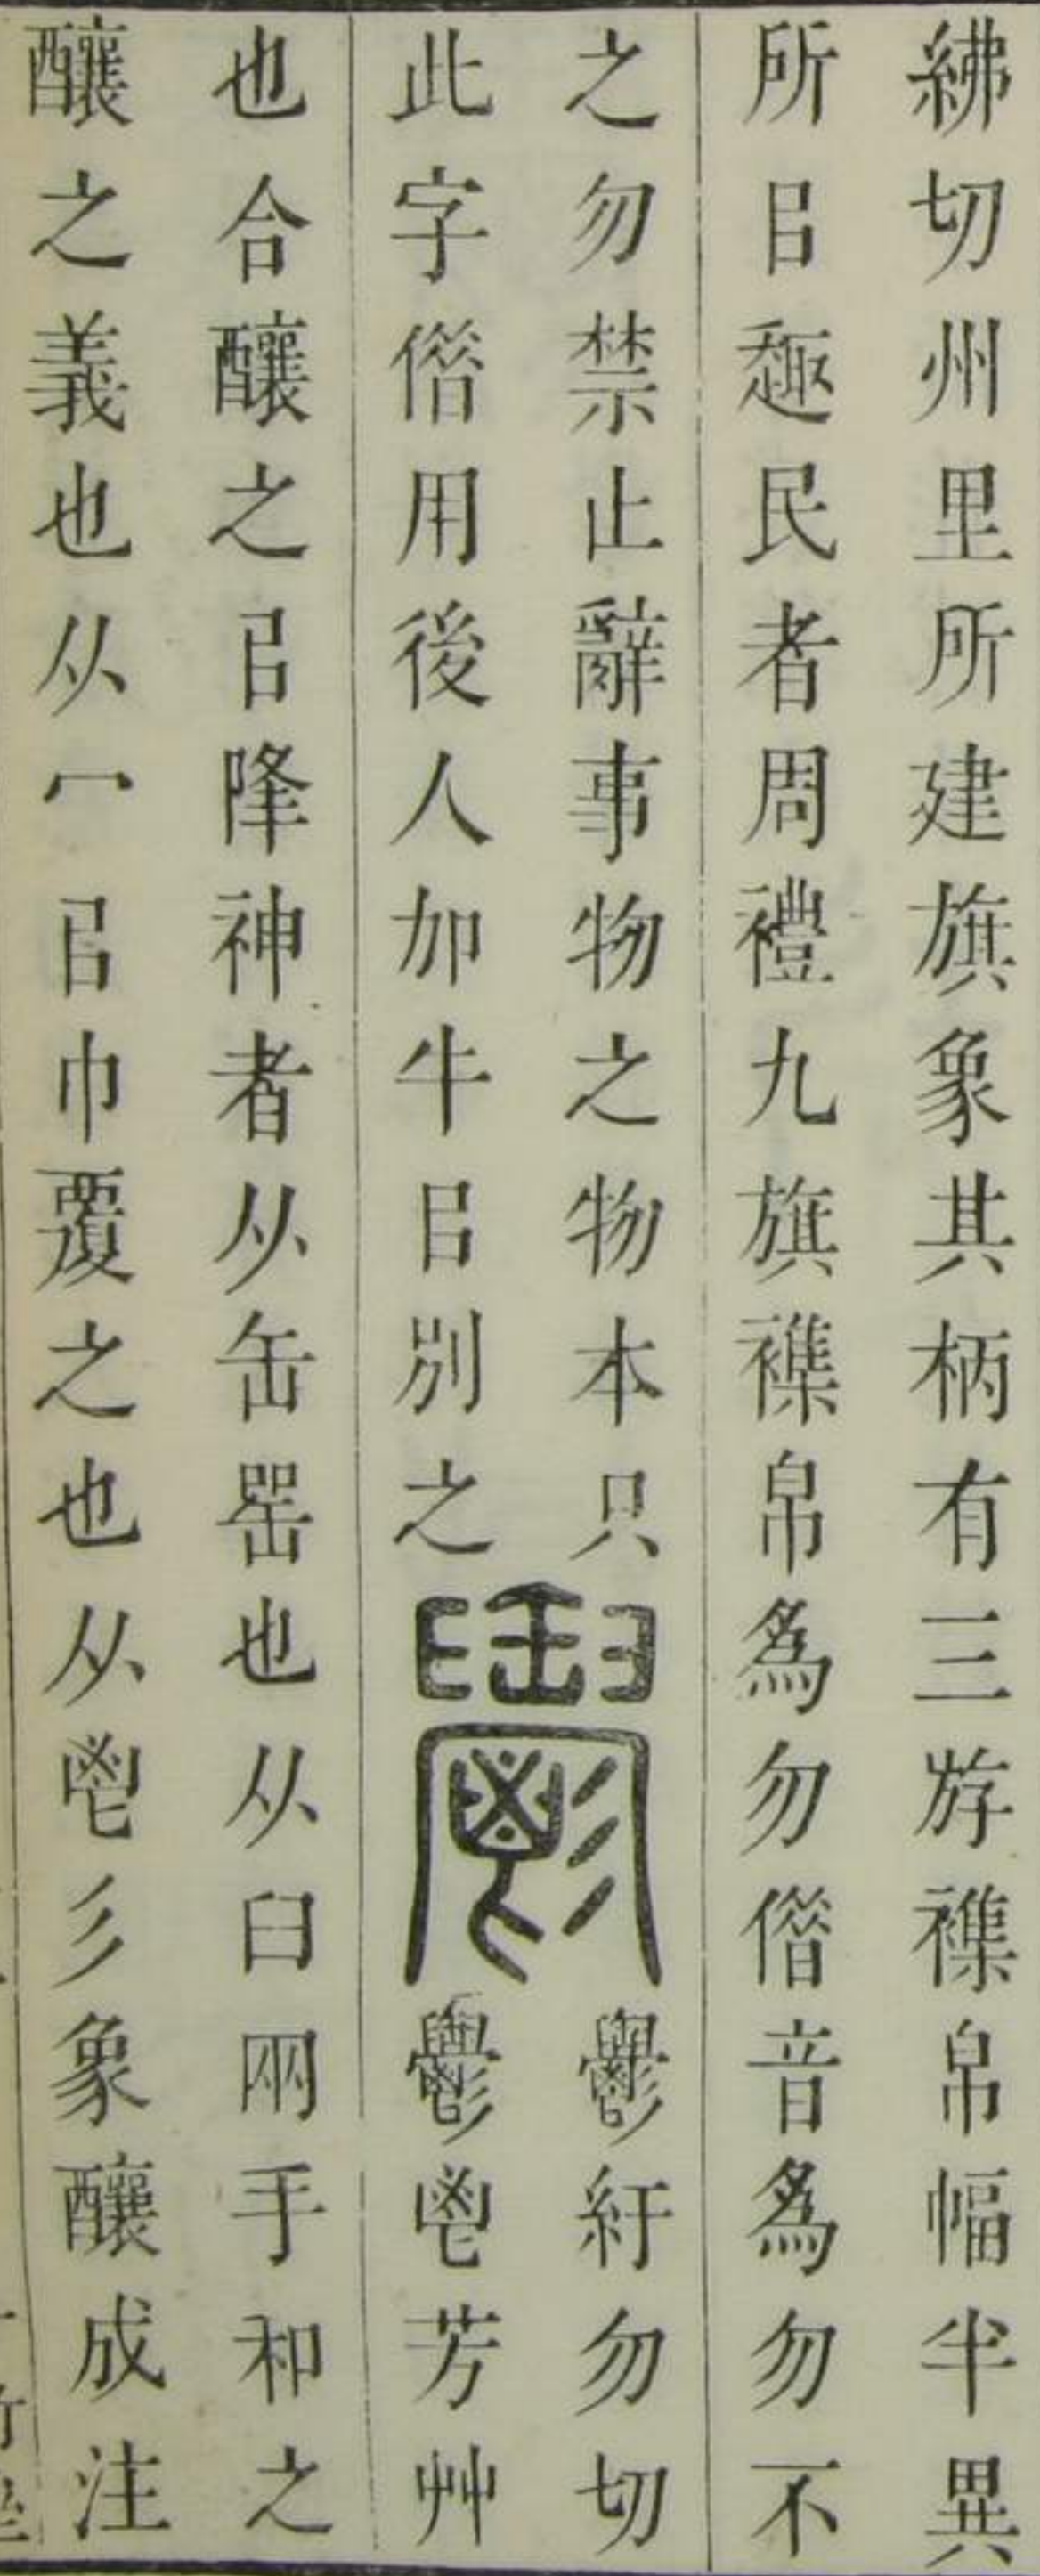 紼切州里所建旗象其柄有三斿襍帛幅半異
所㠯趣民者周禮九旗襍帛爲勿僭音爲勿不
之勿禁止辭事物之物本只
此字僭用後人加牛㠯別之
鬱紆勿切
鬱鬯芳艸
也合釀之㠯降神者从缶罂也从臼兩手和之
釀之義也从冖㠯巾覆之也从鬯彡象釀成注